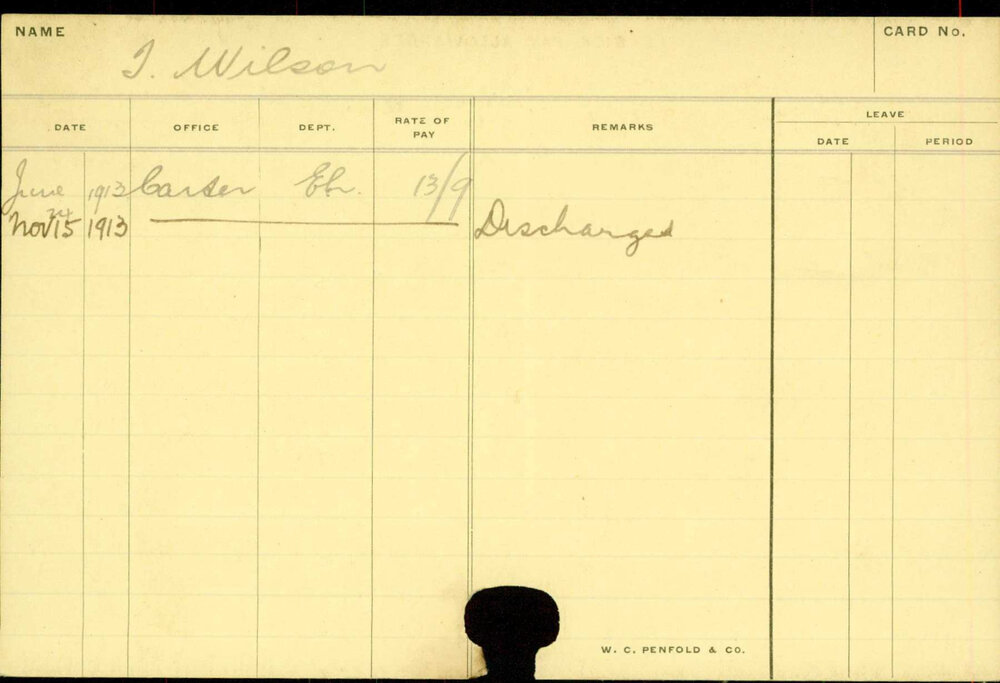 NAME
CARD No.
T. Wilson
DATE
OFFICE
DEPT.
RATE OF PAY
REMARKS
LEAVE
DATE
PERIOD
June 1913 Carter 13/9
Nov 15 1913 Discharged
W. C. PENFOLD & CO.